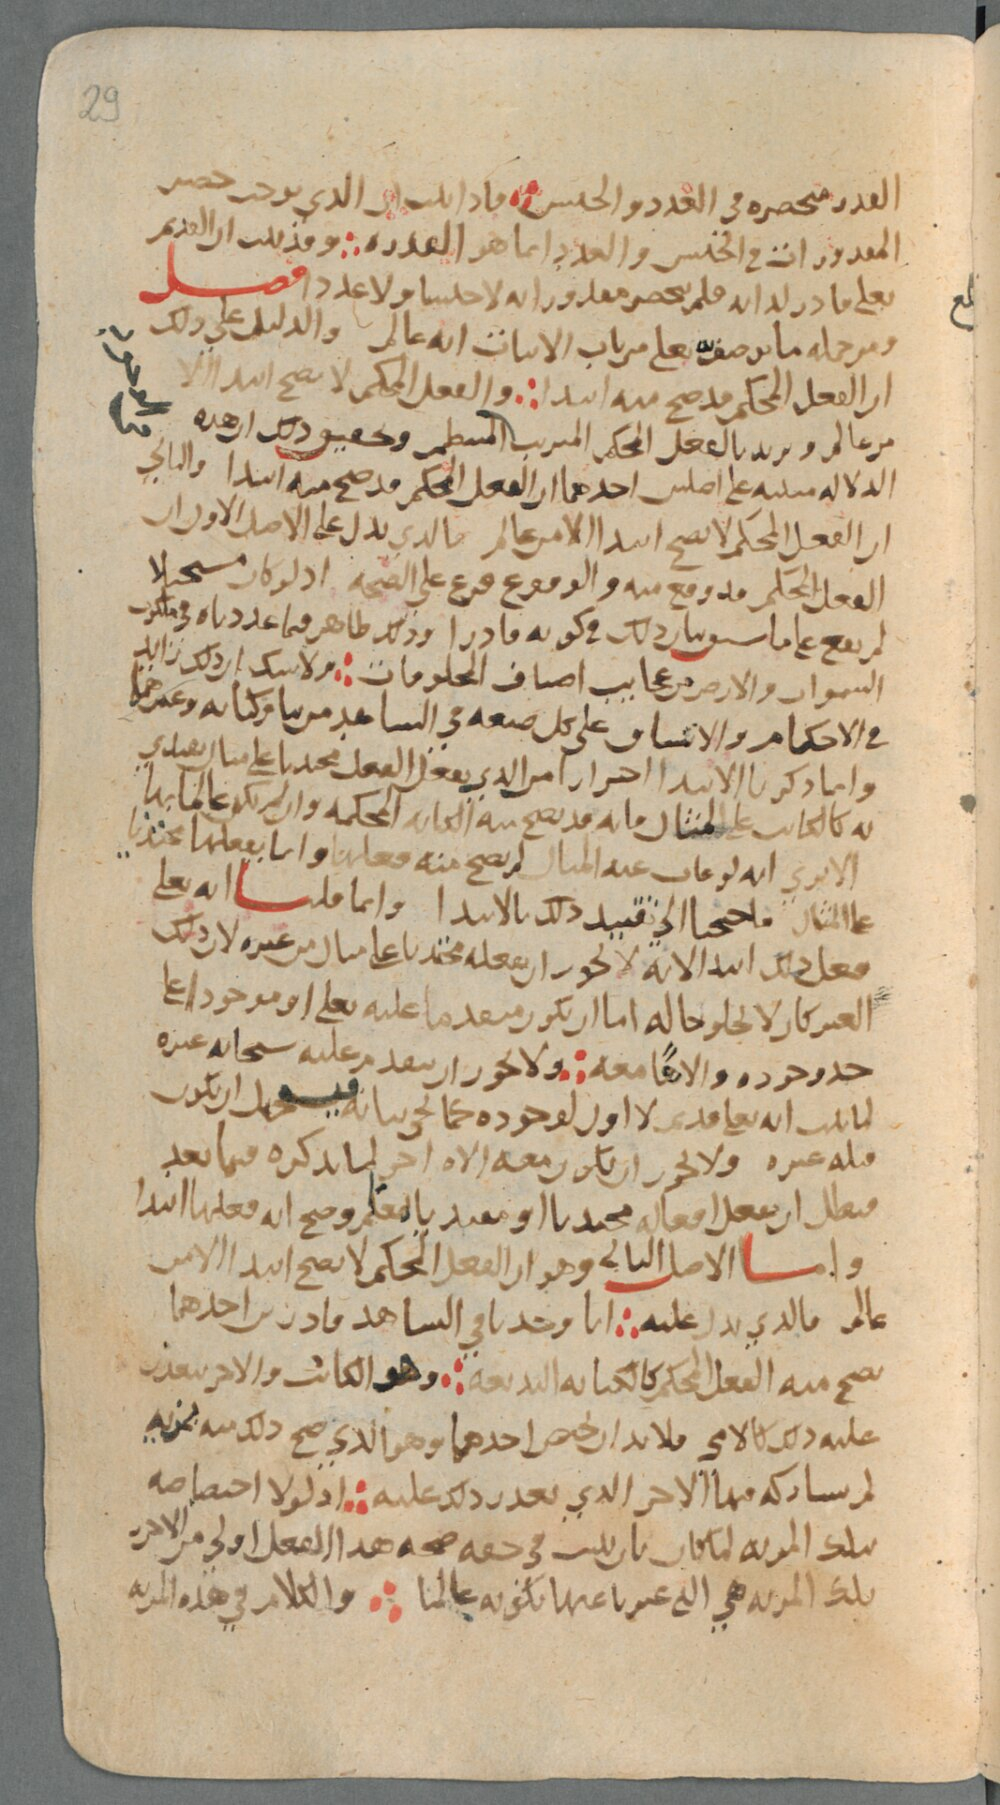 29
القدر منحصره في العدد والجنس فاذا ثبت ان الذي يوجب حصر
المقدورات في الجنس والعدد انما هو القدره وقد ثبت ان القديم
تعلى قادر لذاته فلم ينحصر مقدوراته لا جنسا ولا عددا فصل
ومن جمله ما يوصف به تعلى من باب الاثبات انه عالم والدليل على ذلك
ان الفعل المحكم قد صح منه ابتدا والفعل المحكم لا يصح ابتدا الا
من عالم ونريد بالفعل المحكم المترتب المنتظم وتحقيق ذلك ان هذه
الدلاله مبنيه على اصلين احدهما ان الفعل المحكم قد صح منه ابتدا والثاني
ان الفعل المحكم لا يصح ابتدا الا من عالم فالذي يدل على الاصل الاول ان
الفعل المحكم قد وقع منه والوقوع فرع على الصحه اذ لو كان مستحيلا
لم يقع على ما سبق بيان ذلك في كونه قادرا وذلك ظاهر فيما عددناه في ملكوت
السموات والارض من عجايب اصناف المخلوقات ولا شك ان ذلك زايد
في الاحكام والاتساق على كل صنعه في الشاهد من بنا وكتابه وغيرهما
وانما ذكرنا الابتدا احترازا من الذي يفعل الفعل محتذيا على مثال يقتدي
به كالكاتب على المثال فانه قد يصح منه الكتابه المحكمه وان لم يكن عالما بها
الا ترى انه لو غاب عنه المثال لم يصح منه فعلها وانما يفعلها محتذيا
على المثال فاحتجنا الى تقييد ذلك بالابتدا وانما قلنا انه تعلى
فعل ذلك ابتدا لانه لا يجوز ان يفعله محتذيا على مثال من غيره لان ذلك
الغير كان لا يخلو حاله اما ان يكون متقدما عليه تعلى او موجودا على
حد وجوده والاها معه ولا يجوز ان يتقدم عليه سبحانه غيره
لما ثبت انه تعلى قديم لا اول لوجوده كما يجي بيانه فيستحيل ان يكون
قبله غيره ولا يجوز ان يكون معه الاه اخر لما نذكره فيما بعد
فبطل ان يفعل افعاله محتذيا او مقتديا بالمعلم وصح انه فعلها ابتدا
واما الاصل الثاني وهو ان الفعل المحكم لا يصح ابتدا الا من
عالم فالذي يدل عليه انا وجدنا في الشاهد قادرين احدهما
يصح منه الفعل المحكم كالكتابه البديعه وهو الكاتب والاخر يتعذر
عليه ذلك كالامي فلا بد ان يختص احدهما وهو الذي صح ذلك منه بمزيه
لم يشاركه فيها الاخر الذي تعذر ذلك عليه اذ لولا اختصاصه
بتلك المزيه لما كان بان يثبت في حقه صحه هذا الفعل اولى من الاخر
تلك المزيه هي التي عبرنا عنها بكونه عالما والكلام في هذه المزيه